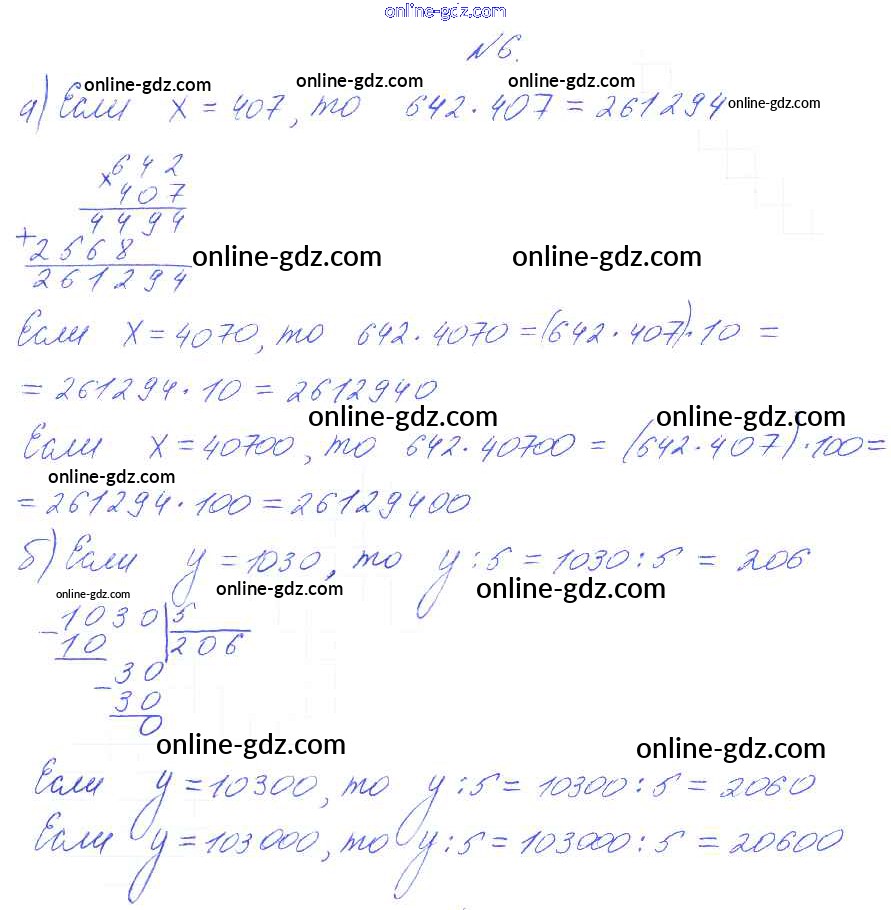 online-gdz.com
№6.
online-gdz.com online-gdz.com
а) Если x = 407, то 642 · 407 = 261294 online-gdz.com
× 642
407
4494
+ 2568
online-gdz.com online-gdz.com
261294
Если x = 4070, то 642 · 4070 = (642 · 407) · 10 =
= 261294 · 10 = 2612940
online-gdz.com online-gdz.com
Если x = 40700, то 642 · 40700 = (642 · 407) · 100 =
online-gdz.com
= 261294 · 100 = 26129400
б) Если y = 1030, то y : 5 = 1030 : 5 = 206
online-gdz.com online-gdz.com online-gdz.com
− 1030 | 5
10 | 206
− 30
30
0
online-gdz.com online-gdz.com
Если y = 10300, то y : 5 = 10300 : 5 = 2060
Если y = 103000, то y : 5 = 103000 : 5 = 20600